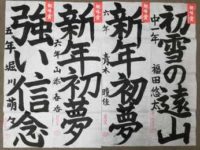 初雪の遠山
中一年 福田悠太
新年初夢
六年
新年初夢
六年
強い信念
五年 堀川萌々